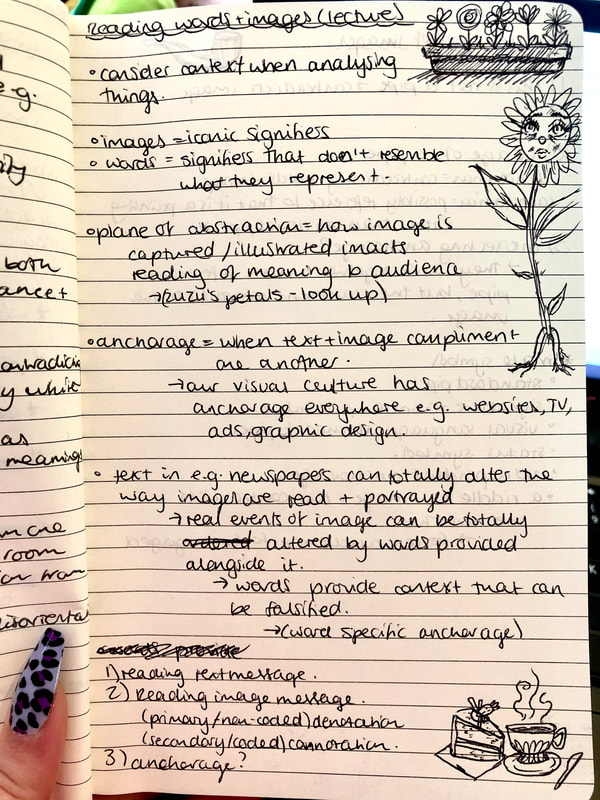 Reading words + images (lecture)
• consider context when analysing
things.
• images = iconic signifiess
• words = signifiess that don't resemble
what they represent.
• plane of abstraction = how image is
captured / illustrated imacts
reading of meaning to audience
→ (zuzu's petals - look up)
• anchorage = when text + image compliment
one another.
→ our visual culture has
anchorage everywhere e.g. websites, TV,
ads, graphic design.
• text in e.g. newspapers can totally alter the
way images are read + portrayed
→ real events of image can be totally
altered by words provided
alongside it.
→ words provide context that can
be falsified.
→ (word specific anchorage)
1) reading text message.
2) Reading image message.
(primary/non-coded) denotation
(secondary/coded) connotation.
3) anchorage?
e.g.
both
y white
as
meanings
room